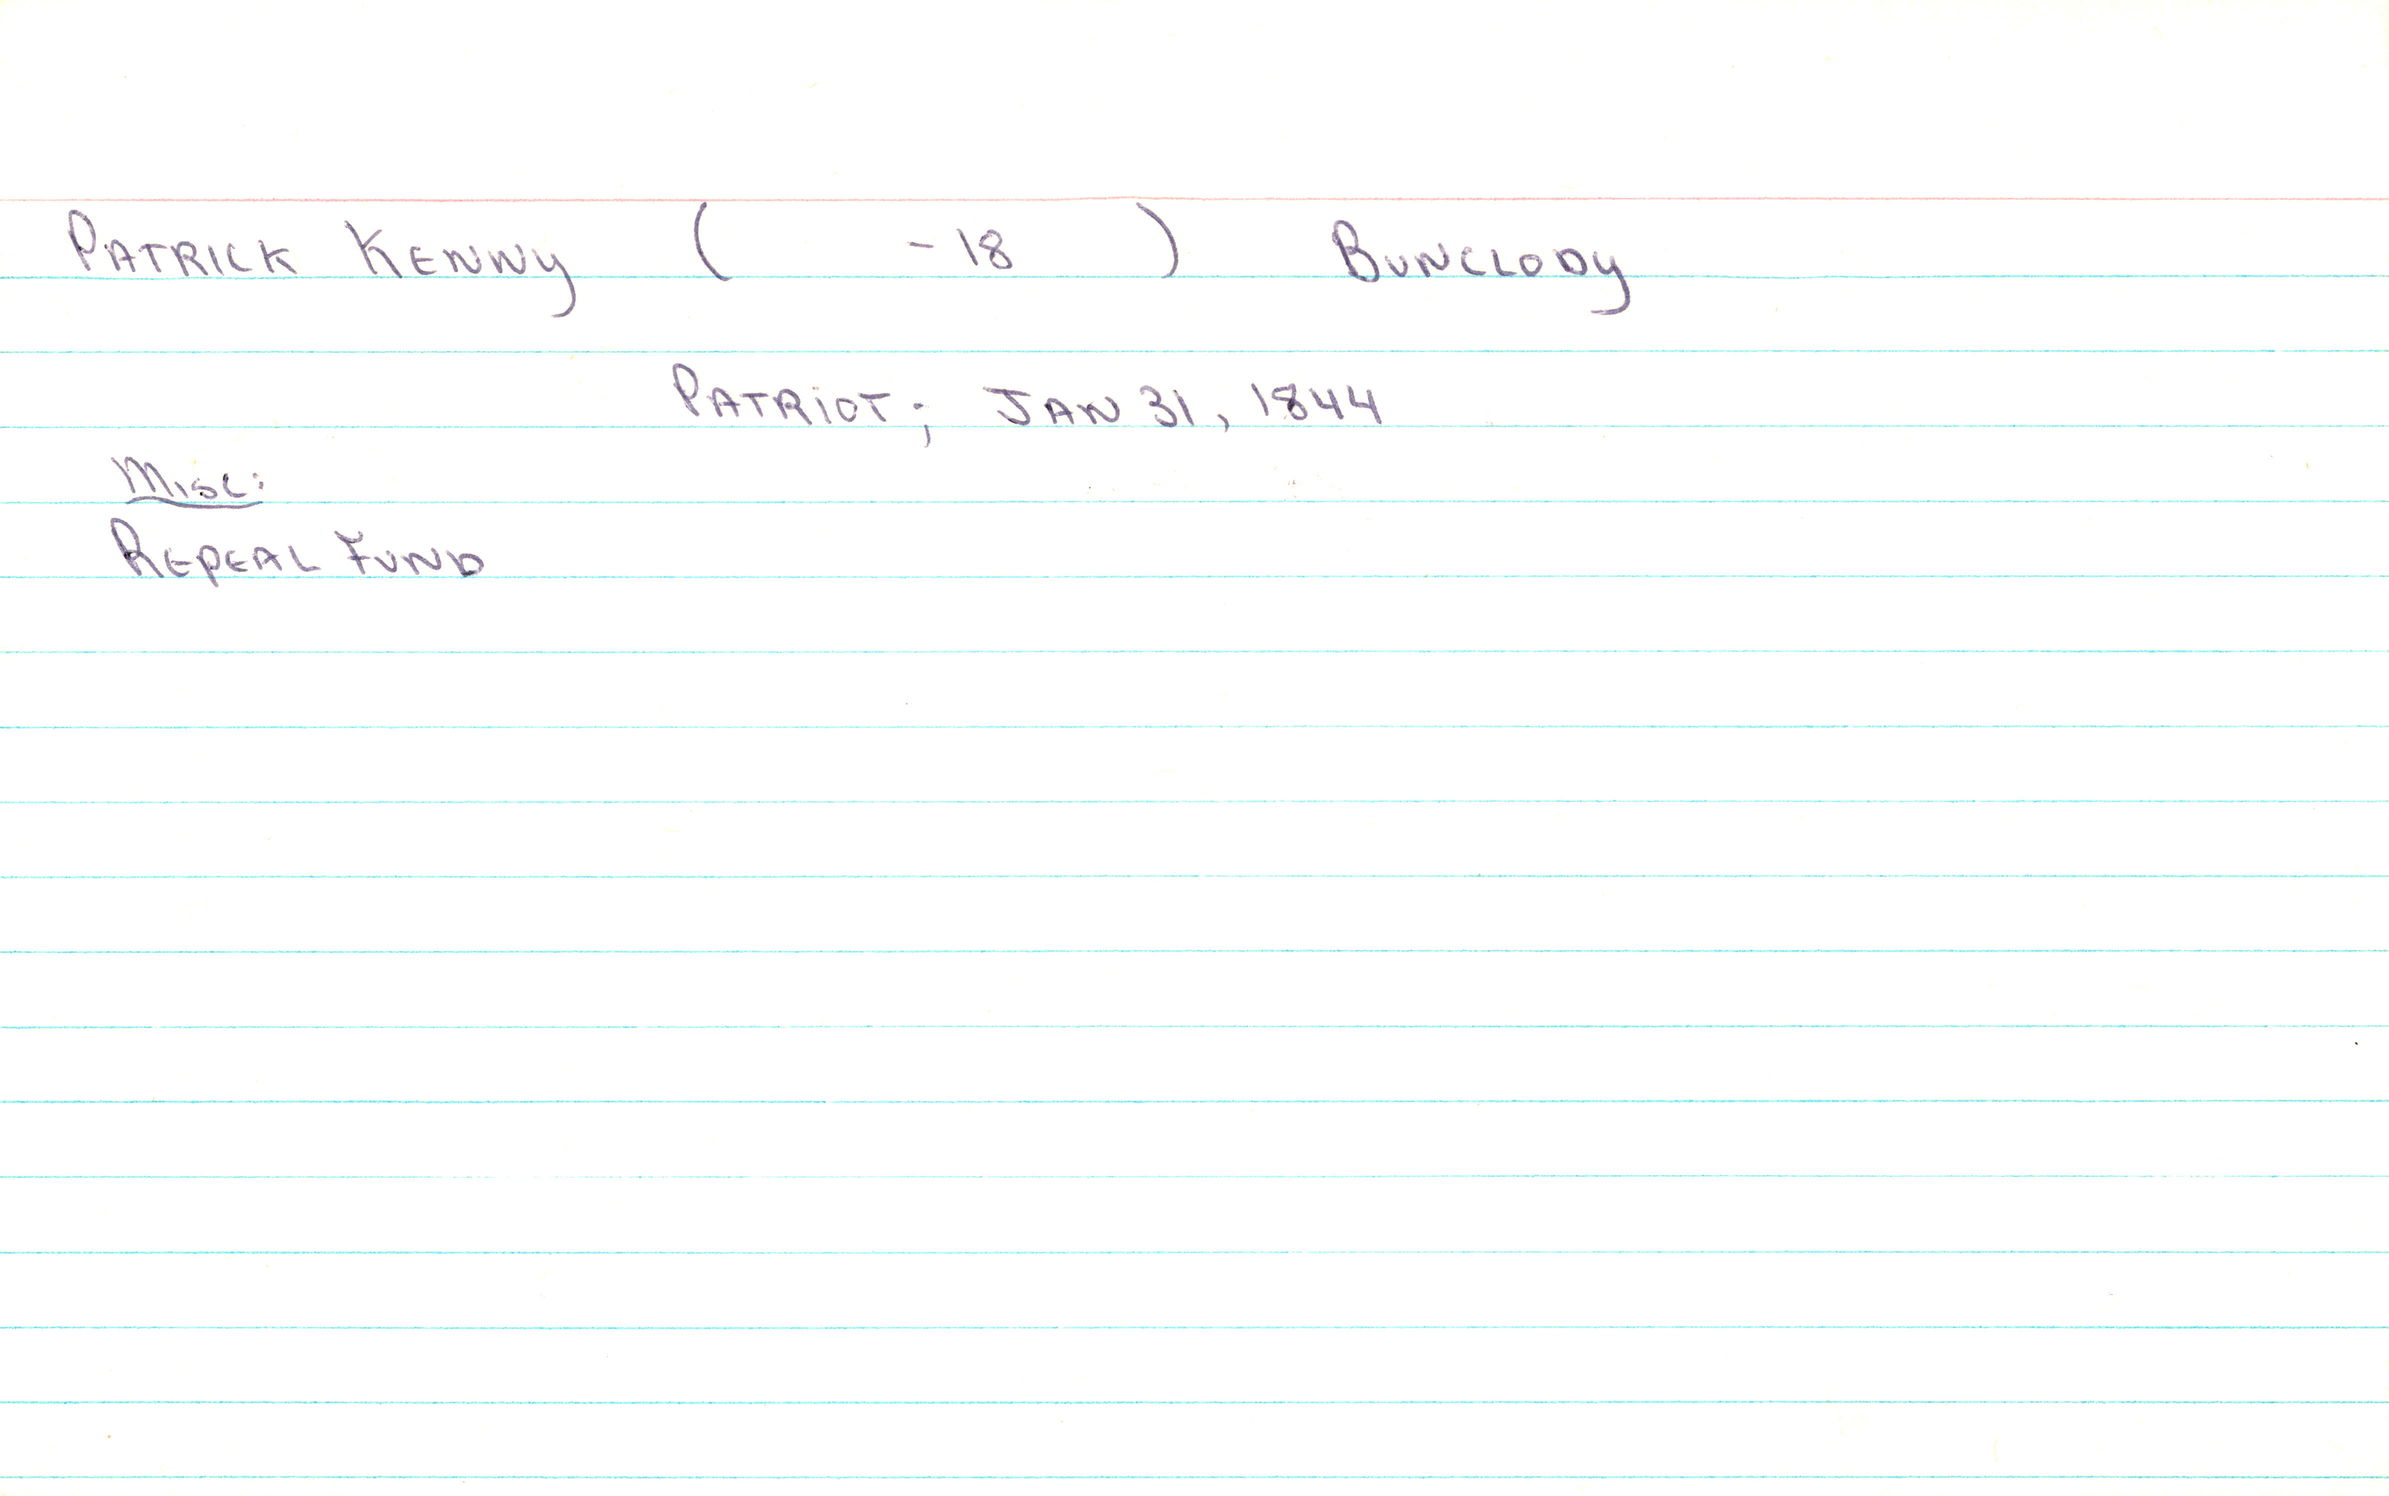 Patrick Kenny ( -18 ) Bunclody
Patriot; Jan 31, 1844
Misc:
Repeal Fund